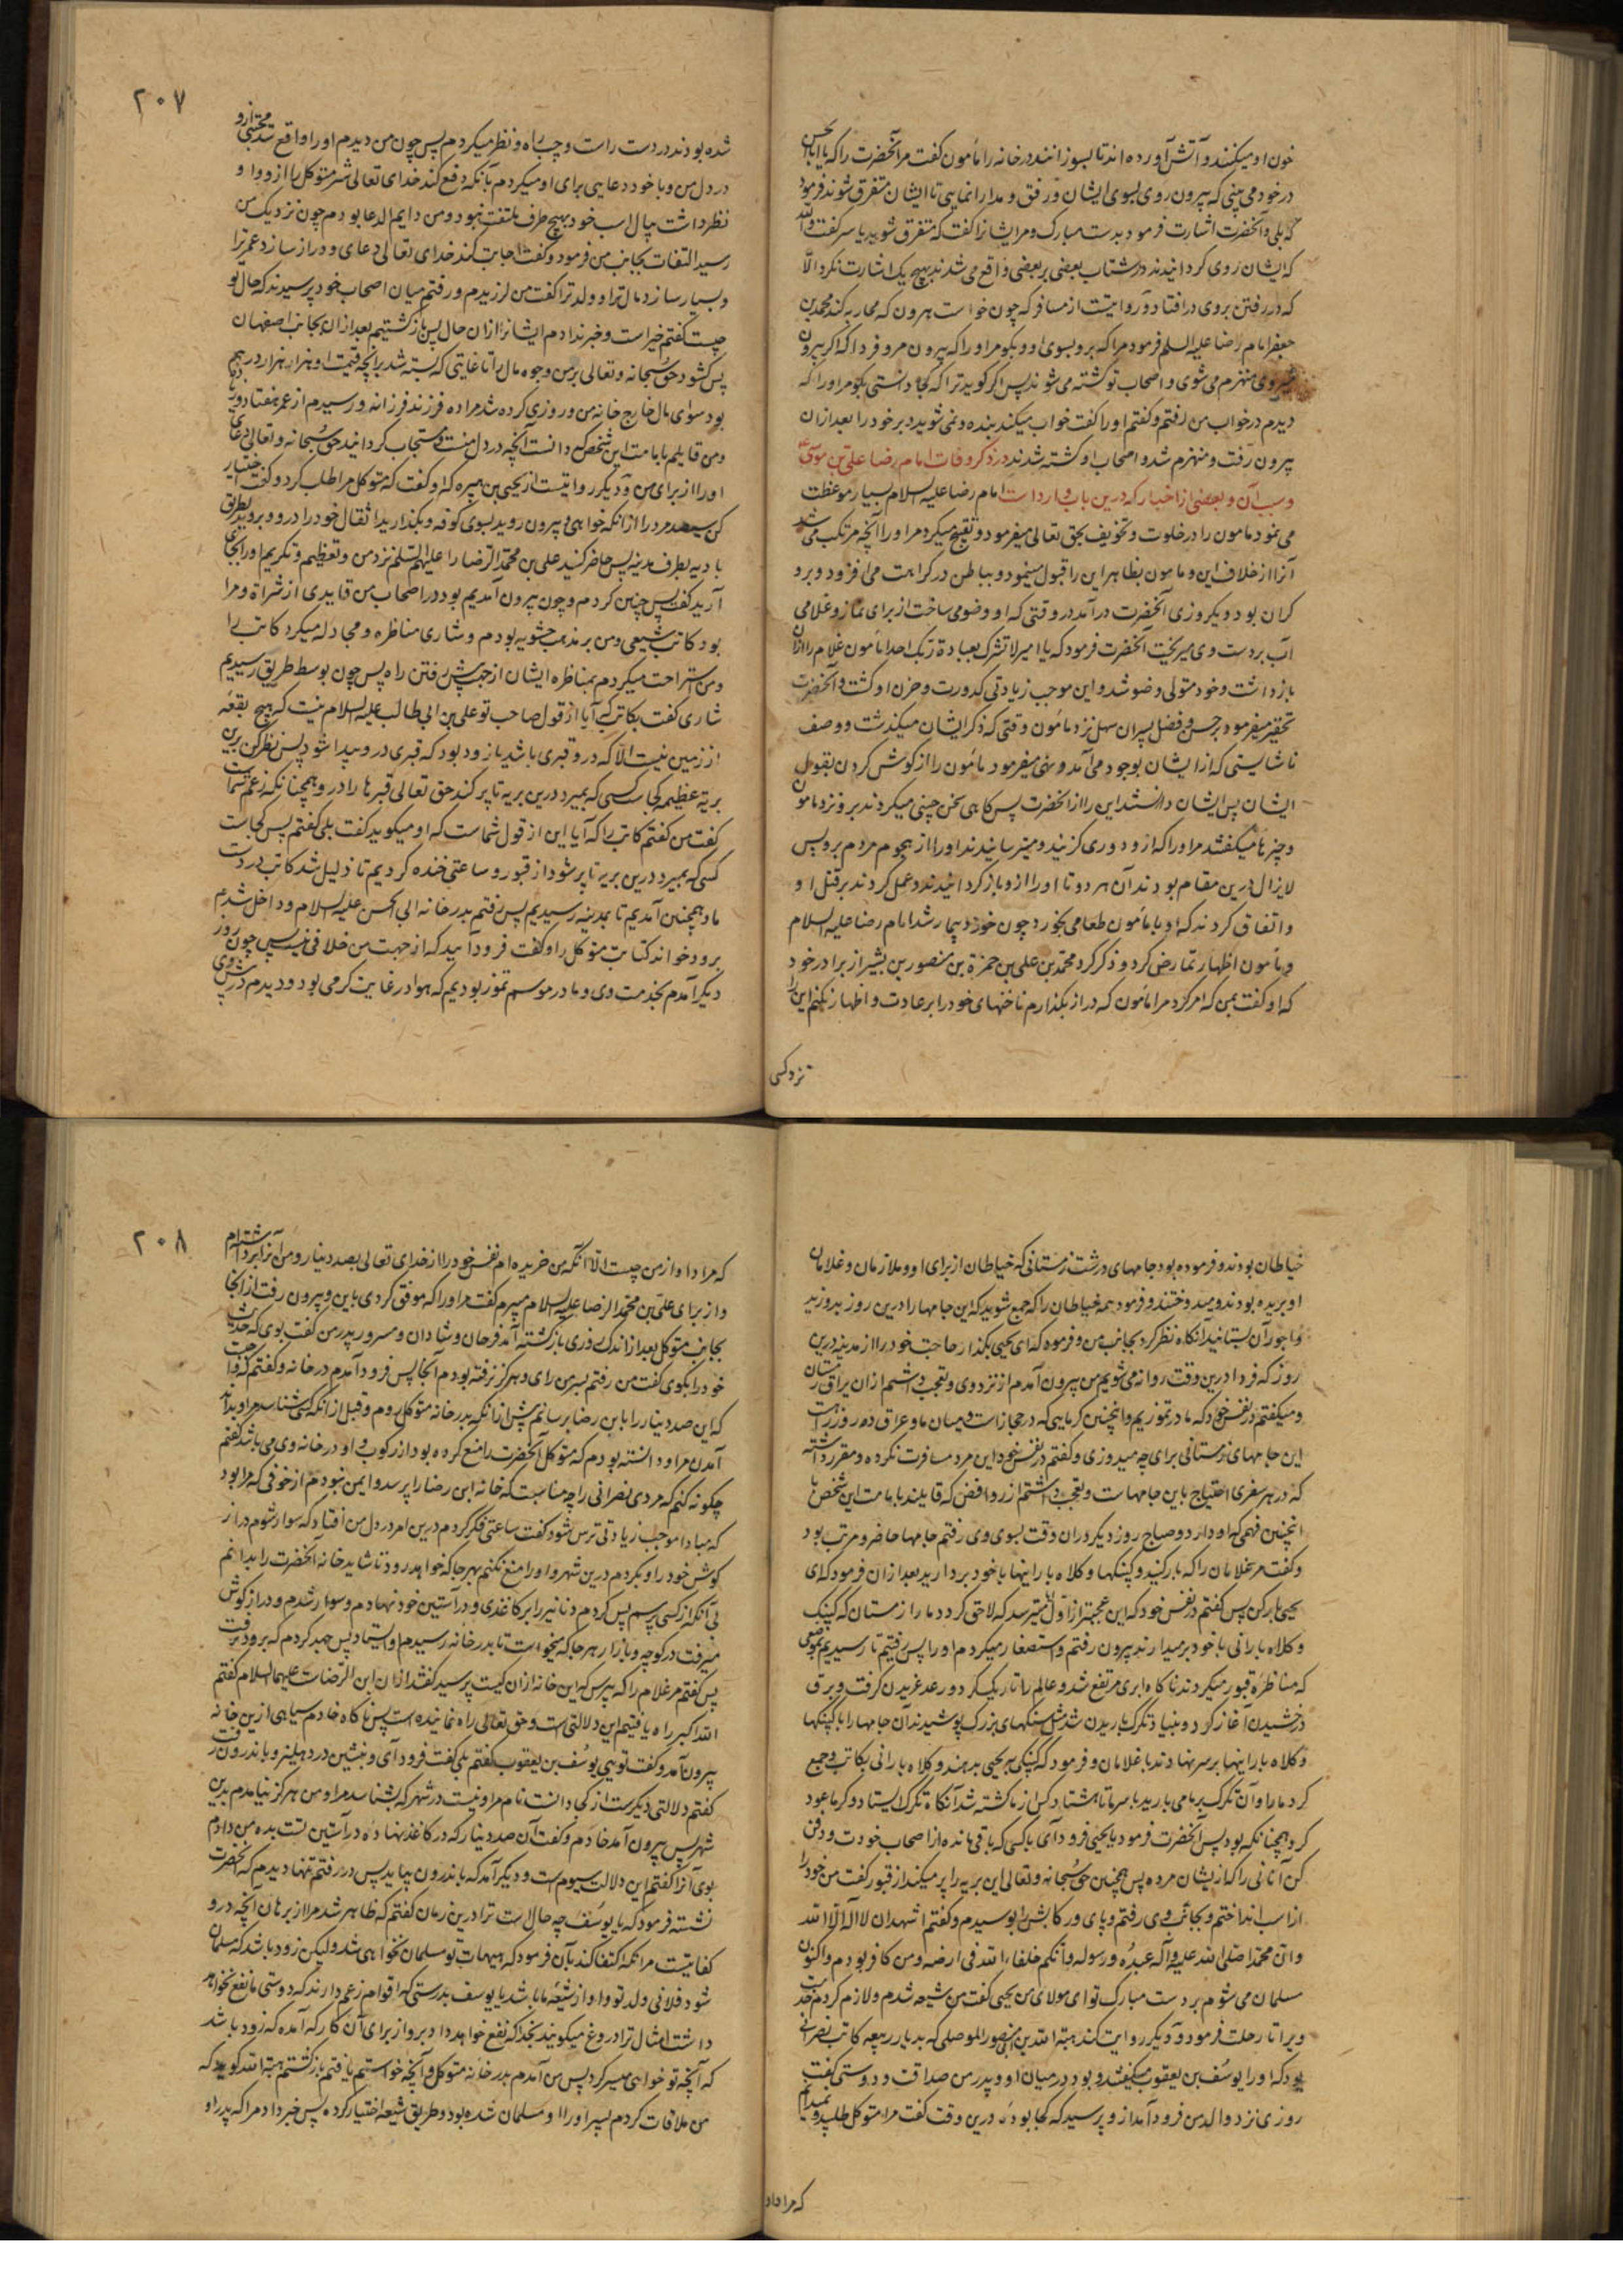 خون او میکنند و آتش آورده اند تا بسوزانند در خانه را مأمون گفت مر آنحضرت را که یا ابا الحسن
در خود می بینی که بیرون روی بسوی ایشان و رفق و مدارا نمایی تا ایشان متفرق شوند فرمود
که بلی و آنحضرت اشارت فرمود بدست مبارک و مر ایشانرا گفت که متفرق شوید یاسر گفت والله
که ایشان روی گردانیدند در شتاب بعضی بر بعضی واقع می شدند بهیچ یک اشارت نکرد الا
که در رفتن بروی در افتاد و روایتست از مسافر که چون خواست هرون که محاربه کند محمد بن
جعفر امام رضا علیه السلم فرمود مرا که برو بسوی او و بگو مر او را که بیرون مرو فردا که اگر بیرون
میروی منهزم می شوی و اصحاب تو کشته می شوند پس اگر گوید ترا که کجا دانستی بگو مر او را که
دیدم در خواب من رفتم و گفتم او را گفت خواب میکند بنده و نمی شوید دبر خود را بعد از ان
بیرون رفت و منهزم شد و اصحاب او کشته شدند در ذکر وفات امام رضا علی بن موسی
و سبب آن و بعضی از اخبار که درین باب وارد است امام رضا علیه السلام بسیار موعظت
می نمود مامون را در خلوت و تخویف بحق تعالی میفرمود و تقبیح میکرد مر او را آنچه مرتکب می شد
آنرا از خلاف این و مامون بظاهر این را قبول مینمود و بباطن در کراهت می افزود و برو
گران بود و یکروزی آنحضرت در آمد در وقتی که او وضو می ساخت از برای نماز و غلامی
آب بر دست وی میریخت آنحضرت فرمود که یا امیر لا تشرک بعبادة ربک احدا مأمون غلام را ازان
بازداشت و خود متولی وضو شد و این موجب زیادتی کدورت و حزن او گشت و آنحضرت
تحقیر میفرمود بر حسن و فضل پسران سهل نزد مأمون وقتی که ذکر ایشان میگذشت و وصف
ناشایستی که از ایشان بوجود می آمد و نهی میفرمود مأمون را از گوش کردن بقول
ایشان پس ایشان دانستند این را از انحضرت پس گاهی سخن چینی میکردند برو نزد مامون
و چیزها میگفتند مر او را که ازو دوری گزیند و میترسانیدند او را از هجوم مردم برو پس
لایزال درین مقام بودند آن هر دو تا او را ازو باز گردانیدند و عمل کردند بر قتل او
و اتفاق کردند که او با مأمون طعامی بخورد چون خورد بیمار شد امام رضا علیه السلام
و مأمون اظهار تمارض کرد و ذکر کرد محمد بن علی بن حمزة بن منصور بن بشیر از برادر خود
که او گفت بمن که امر کرد مرا مأمون که دراز بگذارم ناخنهای خود را بر عادت و اظهار نکنم این را
نزد کسی
۲۰۷
شده بودند در دست راست و چپ راه و نظر میکردم پس چون من دیدم او را واقع شد محبتی ازو
در دل من و با خود دعایی برای او میکردم بآنکه دفع کند خدای تعالی شر متوکل را ازو و او
نظر داشت بیال اسب خود بهیچ طرف ملتفت نبود و من دایم الدعا بودم چون نزدیک من
رسید التفات بجانب من فرمود و گفت اجابت کند خدای تعالی دعای و دراز سازد عمر ترا
و بسیار سازد مال ترا و ولد ترا گفت من لرزیدم و رفتم میان اصحاب خود پرسیدند که حال تو
چیست گفتم خیر است و خبر ندادم ایشانرا ازان حال پس بازگشتیم بعد از ان بجانب اصفهان
پس گشود حق سبحانه و تعالی بر من وجوه مال را تا غایتی که بسته شد بر آنچه قیمت او هزار هزار درهم
بود سوای مال خارج خانه من و روزی کرده شدم را ده فرزند فرزانه و رسیدم از عمر بهفتاد و
ومن قایلم بامامت این شخص که دانست آنچه در دل منست و مستجاب گردانید حق سبحانه و تعالی دعای
او را از برای من و دیگر روایتست از یحیی بن هبیره که او گفت که متوکل مرا طلب کرد و گفت اختیار
کن سیصد مرد را از انکه خواهی و بیرون روید بسوی کوفه و بگذارید اثقال خود را درو و بروید بطریق
بادیه بطرف مدینه پس حاضر کنید علی بن محمد الرضا را علیهم السلم نزد من و تعظیم و تکریم او را بجا
آرید گفت پس چنین کردم و چون بیرون آمدیم بود در اصحاب من قایدی از شراة و مرا
بود کاتب شیعی و من بر مذهب حشویه بودم و شاری مناظره و مجادله میکرد کاتب را
ومن استراحت میکردم بمناظره ایشان از جهت پیش رفتن راه پس چون بوسط طریق رسیدیم
شاری گفت بکاتب که آیا از قول صاحب تو علی بن ابی طالب علیه السلام نیست که هیچ بقعهٔ
از زمین نیست الا که درو قبری باشد یا زود بود که قبری درو پیدا شود پس نظر کن برین
بریه عظیمه کجاست کسی که بمیرد درین بریه تا پر کند حق تعالی قبرها را درو همچنانکه زعم شماست
گفت من گفتم کاتب را که آیا این از قول شماست که او میگوید گفت بلی گفتم پس کجاست
کسی که بمیرد درین بریه تا پر شود از قبور و ساعتی خنده کردیم تا ذلیل شد کاتب در دست
ما و همچنین آمدیم تا بمدینه رسیدیم پس رفتم بدر خانه ابی الحسن علیه السلام و داخل شدم
برو و خواند کتابت متوکل را و گفت فرود آیید که از جهت من خلافی نیست پس چون روز
دیگر آمدم بخدمت وی و ما در موسم تموز بودیم که هوا در غایت گرمی بود و دیدم در پیش وی
خیاطان بودند و فرموده بود جامهای درشت زمستانی که خیاطان از برای او و ملازمان و غلامان
او بریده بودند و میدوختند و فرمود همه خیاطان را که جمع شوید که این جامها را درین روز بدوزید
و اجورهٔ آن بستانید آنگاه نظر کرد بجانب من و فرموده که ای یحیی بگذار حاجت خود را از مدینه درین
روز که فردا درین وقت روانه می شویم من بیرون آمدم از نزد وی و تعجب داشتم ازان یراق زمستان
و میگفتم در نفس خود که ما در تموزیم و اینچنین گرمایی که در حجاز است و میان ما و عراق ده روزه راه است
این جامهای زمستانی برای چه میدوزی و گفتم در نفس خود این مرد مسافرت نکرده و مقرر داشته
که در هر سفری احتیاج باین جامهاست و تعجب داشتم از روافض که قایلند بامامت این شخص با
اینچنین فهمی که او دارد و صباح روز دیگر دران وقت بسوی وی رفتم جامها حاضر و مرتب بود
و گفت مر غلامان را که بار کنید و کپنکها و کلاه بارانیها با خود بردارید بعد از ان فرمود که ای
یحیی بار کن پس گفتم در نفس خود که این عجبتر از اول میترسد که لاحق گردد ما را زمستان که کپنک
و کلاه بارانی با خود بر میدارند بیرون رفتم و استصغار میکردم او را پس رفتیم تا رسیدیم بموضعی
که مناظرهٔ قبور میکردند ناگاه ابری مرتفع شد و عالم را تاریک کرد و رعد غریدن گرفت و برق
درخشیدن آغاز کرد و بنیاد تگرگ باریدن شد مثل سنگهای بزرگ پوشیدند آن جامها را با کپنکها
و کلاه بارانیها بر سر نهادند با غلامان و فرمود که کپنکی به یحیی بدهند و کلاه بارانی بکاتب و جمع
کرد ما را و آن تگرگ بر ما می بارید بر سر ما تا هشتاد کس از ما کشته شد آنگاه تگرگ ایستاد و گرما عود
کرد همچنانکه بود پس آنحضرت فرمود یا یحیی فرود آی با کسی که باقی مانده از اصحاب خودت و دفن
کن آنانی را که از یشان مرده پس همچنین حق سبحانه و تعالی این بریه را پر میکند از قبور گفت من خود را
از اسب انداختم و بجانب وی رفتم و پای و رکابش را بوسیدم و گفتم اشهد ان لا اله الا الله
و ان محمدا صلی الله علیه و آله عبده و رسوله و انکم خلفاء الله فی ارضه و من کافر بودم و اکنون
مسلمان می شوم بر دست مبارک تو ای مولای من یحیی گفت من شیعه شدم و لازم کردم خدمت
ویرا تا رحلت فرمود و دیگر روایت کند هبة الله بن ابی منصور الموصلی که بدیار ربیعه کاتب نصرانی
بود که او را یوسف بن یعقوب میگفتند و بود در میان او و پدر من صداقت و دوستی گفت
روزی نزد والد من فرود آمد ازو پرسید که کجا بودهٔ درین وقت گفت مرا متوکل طلبیده و نمیدانم
که مراد او
۲۰۸
که مراد او از من چیست الا آنکه من خریده ام نفس خود را از خدای تعالی بصد دینار و من آنرا برداشته ام
و از برای علی بن محمد الرضا علیه السلام میبرم گفت مر او را که موفق کردی باین و بیرون رفت از انجا
بجانب متوکل بعد از اندک روزی بازگشته آمد فرحان و شادان و مسرور پدر من گفت بوی که حدیث
خود را بگوی گفت من رفتم بسر من رای و هرگز نرفته بودم آنجا پس فرود آمدم در خانه و گفتم که واجبست
که این صد دینار را باین رضا برسانم پیش از انکه بدر خانه متوکل روم و قبل از انکه کسی شناسد مرا و بداند
آمدن مرا و دانسته بودم که متوکل آنحضرت را منع کرده بود از رکوب و او در خانه وی می باشد گفتم
چگونه کنم که مردی نصرانی را چه مناسبت که خانه ابن رضا را پرسد و ایمن نبودم از خوفی که مرا بود
که مبادا موجب زیادتی ترس شود گفت ساعتی فکر کردم درین امر در دل من افتاد که سوار شوم دراز
گوش خود را و بگردم درین شهر و او را منع نکنم بهر جا که خواهد رود تا شاید خانه آنحضرت را بدانم
بی آنکه از کسی پرسم پس کردم دنانیر را بر کاغذی و در آستین خود نهادم و سوار شدم و دراز گوش
میرفت در کوچه و بازار بهر جا که میخواست تا بدر خانه رسیدم و ایستاد پس جهد کردم که برود نرفت
پس گفتم مر غلام را که بپرس که این خانه ازان کیست پرسید گفتند ازان ابن الرضاست علیهما السلام گفتم
الله اکبر راه یافتیم این دلالتی است و حق تعالی راه نمایینده است پس ناگاه خادم سیاهی ازین خانه
بیرون آمد و گفت تویی یوسف بن یعقوب گفتم بلی گفت فرود آی و بنشین در دهلیز و باندرون رفت
گفتم دلالتی دیگرست از کجا دانست نام مرا و نیست در شهر که بشناسد مرا و من هرگز نیامدم بدین
شهر پس بیرون آمد خادم و گفت آن صد دینار که در کاغذ نهادهٔ در آستین تست بده من دادم
بوی آنرا گفتم این دلالت سیوم است و دیگر آمد که باندرون بیا بدید پس در رفتم تنها دیدم که آنحضرت
نشسته فرمود که یا یوسف چه حال است ترا درین زمان گفتم که ظاهر شد مرا از برهان آنچه درو
کفایتست مر آنکه اکتفا کند بآن فرمود که هیهات تو مسلمان نخواهی شد ولیکن زود باشد که مسلمان
شود فلانی ولد تو و او از شیعهٔ ما باشد یا یوسف بدرستی که اقوام زعم دارند که دوستی ما نفع نخواهد
داشت امثال ترا دروغ میگویند بخدا که نفع خواهد داد برو از برای آن کار که آمده که زود باشد
که آنچه تو خواهی میسر گردد پس من آمدم بدر خانه متوکل و آنچه خواستم یافتم بازگشتم هبة الله گوید که
من ملاقات کردم پسر او را و مسلمان شده بود و طریق شیعه اختیار کرده پس خبر داد مرا که پدر او